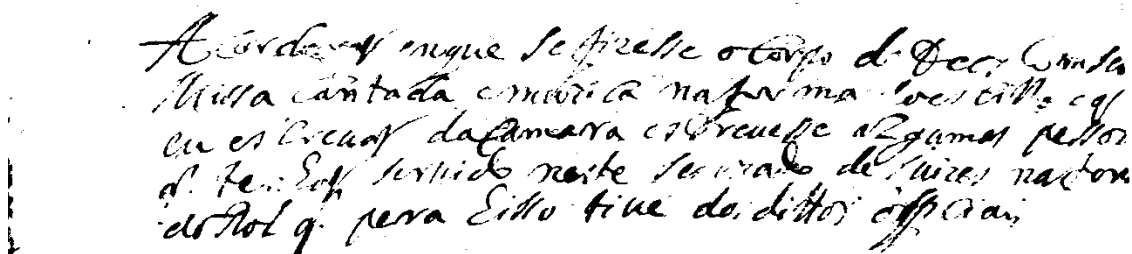 Acordarão em que se fizesse o Corpo de Deos Com sua
Missa cantada e musica na forma do estillo e q
eu escrivão da Camara escrevesse algumas pesso
q. tem servido neste senado de Juizes na forma
do Rol q. pera Eisso tive dos dittos officiais